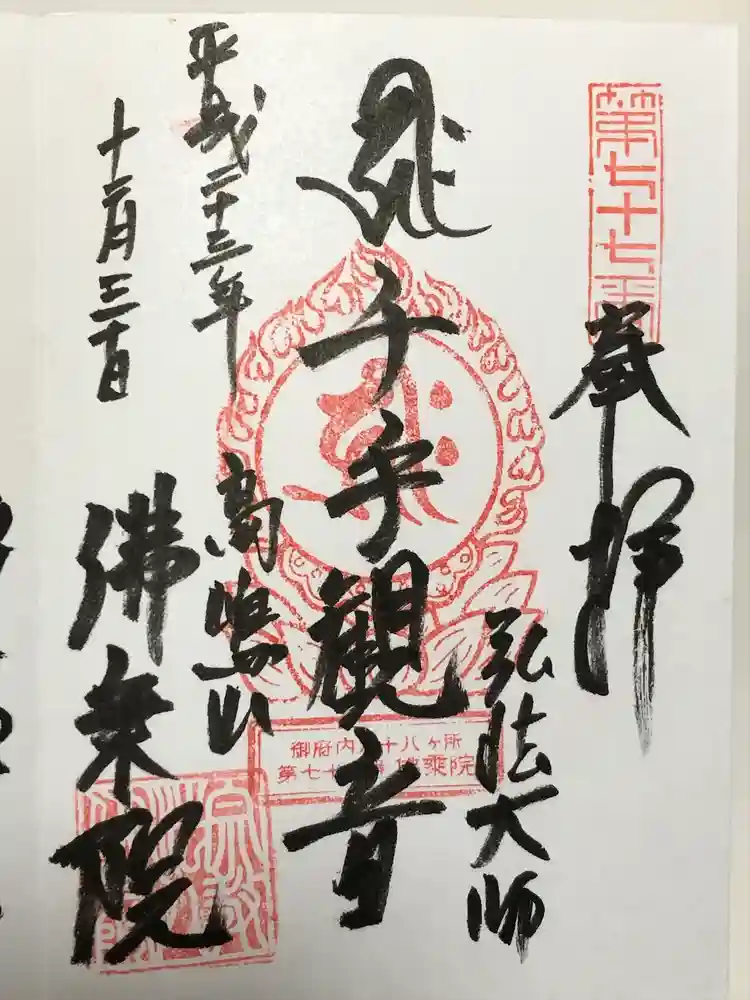 第七十七番
奉拝
弘法大師
千手観音
高嶋山
平成二十三年
十二月三十日
佛乗院
御府内八十八ヶ所
第七十七番 佛乗院